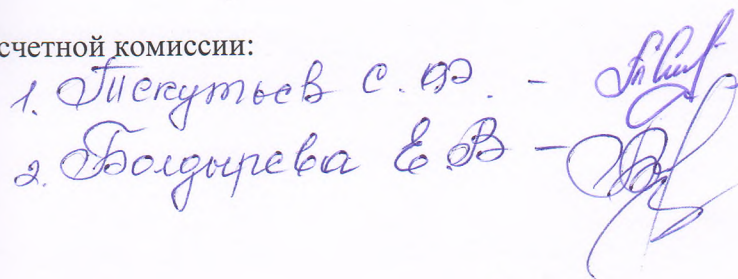 счетной комиссии:
1. Текутьев С.Ф. -
2. Болдырева Е.В -